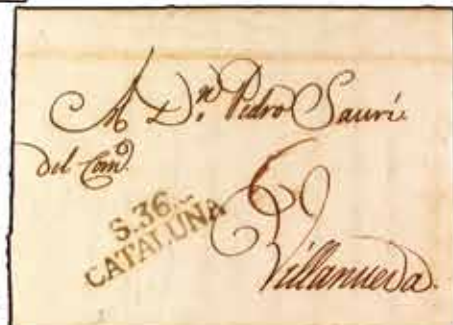 A Dⁿ. Pedro Saurí.
del Comº.
S.36.
CATALUÑA
Villanueva.